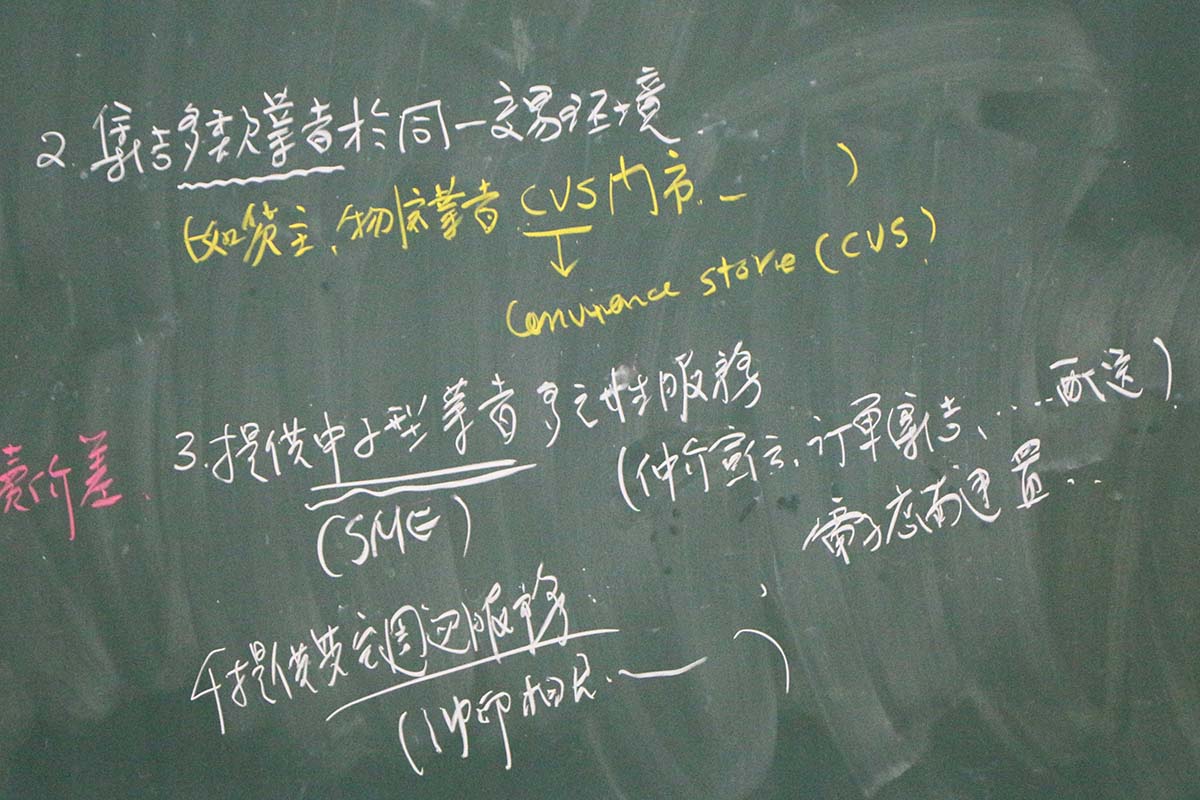 2. 集合多类業者於同一交易环境
(如货主、物流業者 CVS 门市、— )
Convinence store (CVS)
賣价差.
3.提供中小型業者多元性服務
(SME)
(仲介宣传、订单集结、....配送)
電子店面建置..
4提供其它周边服務.
(沖印相片、— )